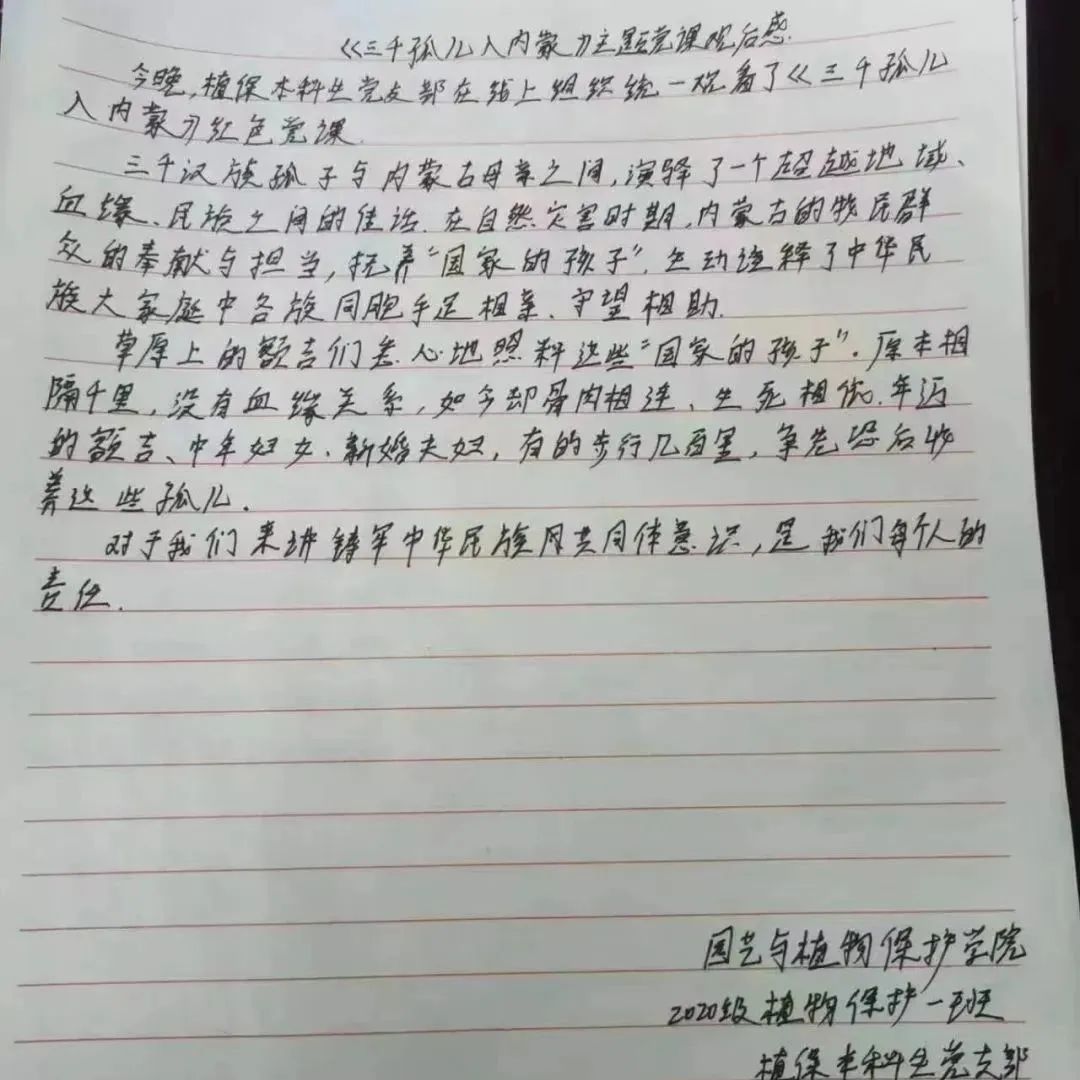 《三千孤儿入内蒙》主题党课观后感
今晚,植保本科生党支部在线上组织统一观看了《三千孤儿
入内蒙》红色党课.
三千汉族孤子与内蒙古母亲之间,演绎了一个超越地域、
血缘、民族之间的佳话.在自然灾害时期,内蒙古的牧民群
众的奉献与担当,抚养“国家的孩子”.生动诠释了中华民
族大家庭中各族同胞手足相亲、守望相助.
草原上的额吉们悉心地照料这些“国家的孩子”.原本相
隔千里,没有血缘关系,如今却骨肉相连、生死相依.年迈
的额吉、中年妇女.新婚夫妇,有的步行几百里,争先恐后收
养这些孤儿.
对于我们来讲铸牢中华民族共同体意识,是我们每个人的
责任.
园艺与植物保护学院
2020级植物保护一班
植保本科生党支部